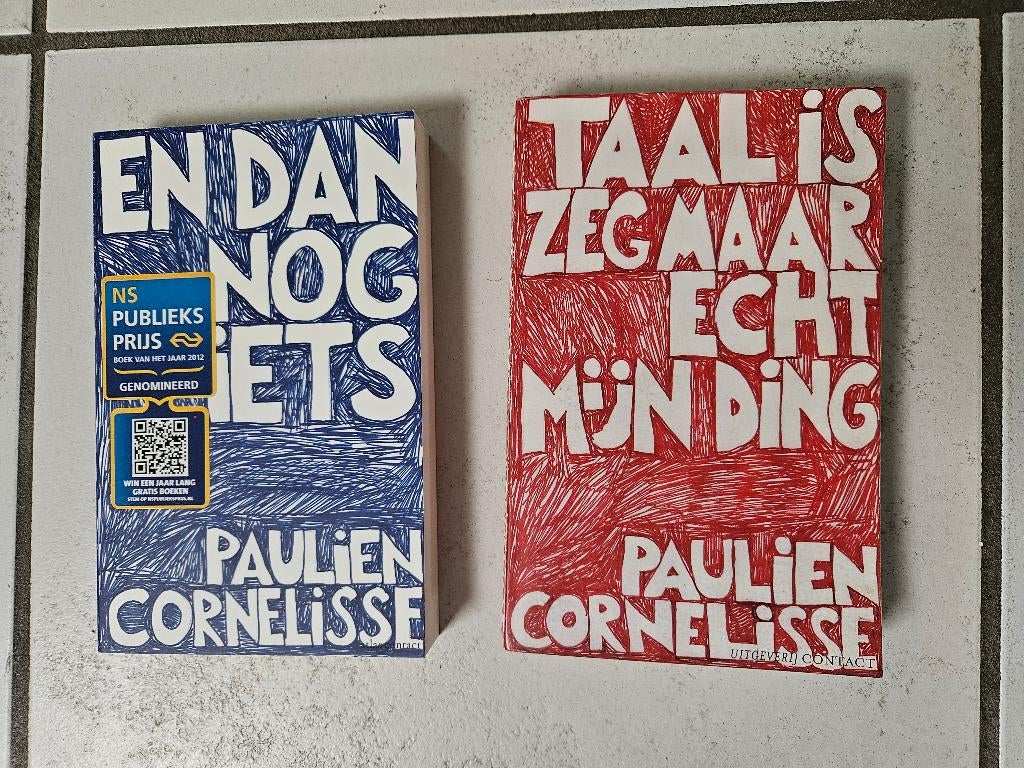 EN DAN
NOG
iETS
NS
PUBLIEKS
PRIJS
BOEK VAN HET JAAR 2012
GENOMINEERD
WIN EEN JAAR LANG
GRATIS BOEKEN
STEM OP NSPUBLIEKSPRIJS.NL
PAULiEN
CORNELiSSE
TAAL iS
ZEG MAAR
ECHT
MijN DiNG
PAULiEN
CORNELiSSE
UITGEVERIJ CONTACT